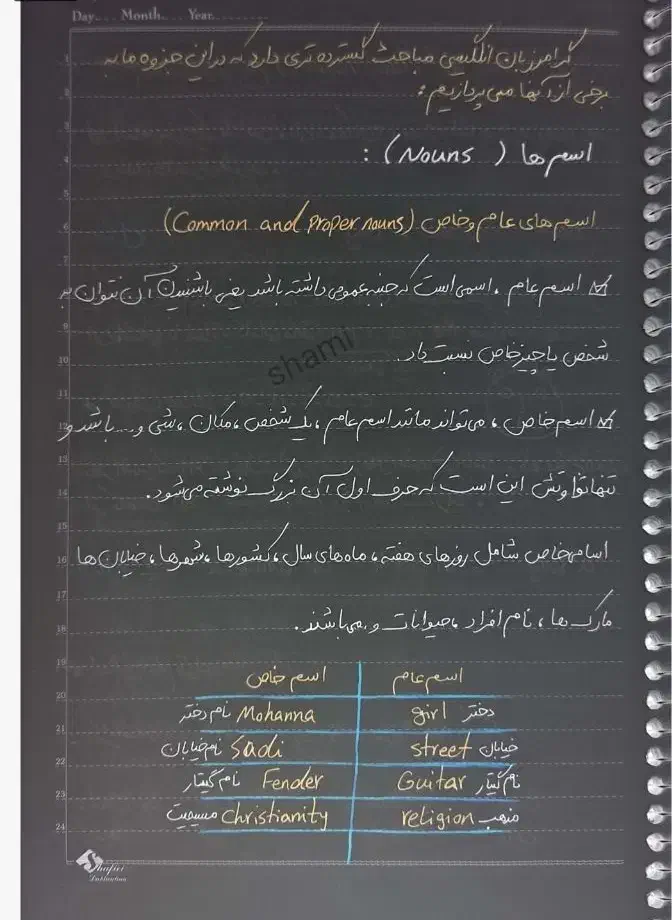 Day.... Month.... Year.........
گرامر زبان انگلیسی مباحث گسترده تری دارد که در این جزوه ما به
برخی از آنها می پردازیم:
اسم ها (Nouns):
اسم های عام و خاص (Common and proper nouns)
اسم عام، اسمی است که جنبه عمومی داشته باشد یعنی با شنیدن آن نتوان به
شخص یا چیز خاص نسبت داد.
shami
اسم خاص، می تواند مانند اسم عام، یک شخص، مکان، شی و... باشد و
تنها تفاوتش این است که حرف اول آن بزرگ نوشته می شود.
اسامی خاص شامل روزهای هفته، ماه های سال، کشورها، شهرها، خیابان ها
مارک ها، نام افراد، حیوانات و... می باشند.
اسم عام اسم خاص
دختر girl Mohanna نام دختر
خیابان street Sadi نام خیابان
نام گیتار Guitar Fender نام گیتار
مذهب religion christianity مسیحیت
Shafiei